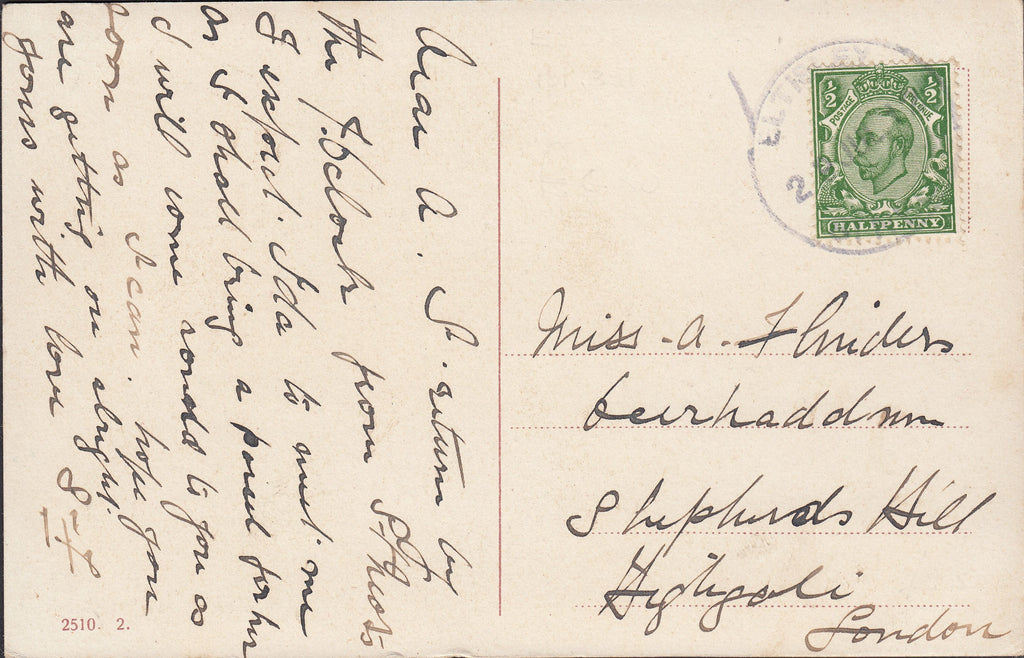 Dear A. I return by
the 7.0clock from St Neots
I expect Ida to meet me
as I shall bring a parcel for her
I will come round to you as
soon as I can. hope you
are getting on alright.
yours with love S-F
Miss - A - Flinders
Shepherds Hill
Highgate
London
1/2 1/2
POSTAGE REVENUE
HALFPENNY
2
2510. 2.